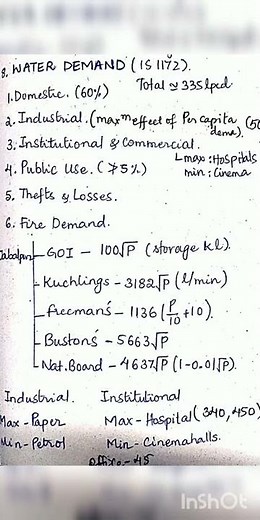 8. WATER DEMAND (IS 1172).
Total ≃ 335 lpcd
1. Domestic. (60%)
2. Industrial. (maxᵐ effect of Per capita
dema.) (50
3. Institutional & Commercial.
max: Hospitals
4. Public Use. (≯5%)
min: Cinema
5. Thefts & Losses.
6. Fire Demand.
GOI – 100√P (storage kl).
Kuchlings – 3182√P (l/min)
Freeman's – 1136 (P/10 + 10).
Buston's – 5663√P
Nat. Board – 4637√P (1-0.01√P).
Industrial. Institutional
Max – Paper Max – Hospital (340, 450)
Min – Petrol Min – Cinemahalls.
office – 45
InShOt